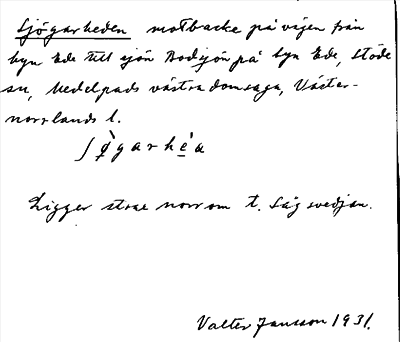 Sjögarheden motbacke på vägen från
byn Ede till sjön Bodsjön på byn Ede, Stöde
sn, Medelpads västra domsaga, Väster-
norrlands l.
ʃø̀garhe̱̍a
Ligger strax norr om t. Sågsvedjan.
Valter Jansson 1931.